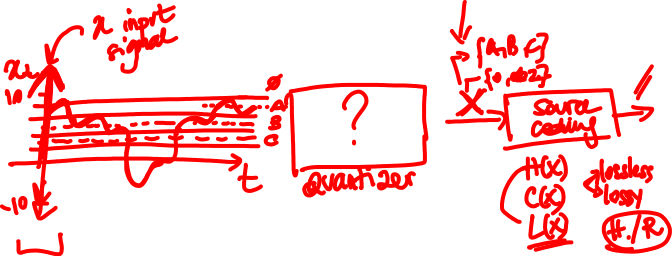 x input
signal
x
10
-10
t
A
B
C
?
Quantizer
X
{A,B,C}
source
coding
H(X)
C(X)
L(X)
lossless
lossy
H/R